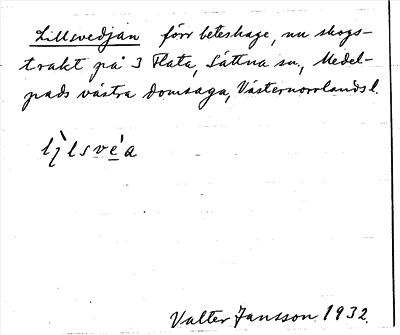 Lillsvedjan förr beteshage, nu skogs-
trakt på 3 Flata, Sättna sn., Medel-
pads västra domsaga, Västernorrlands l.
Valter Jansson 1932.